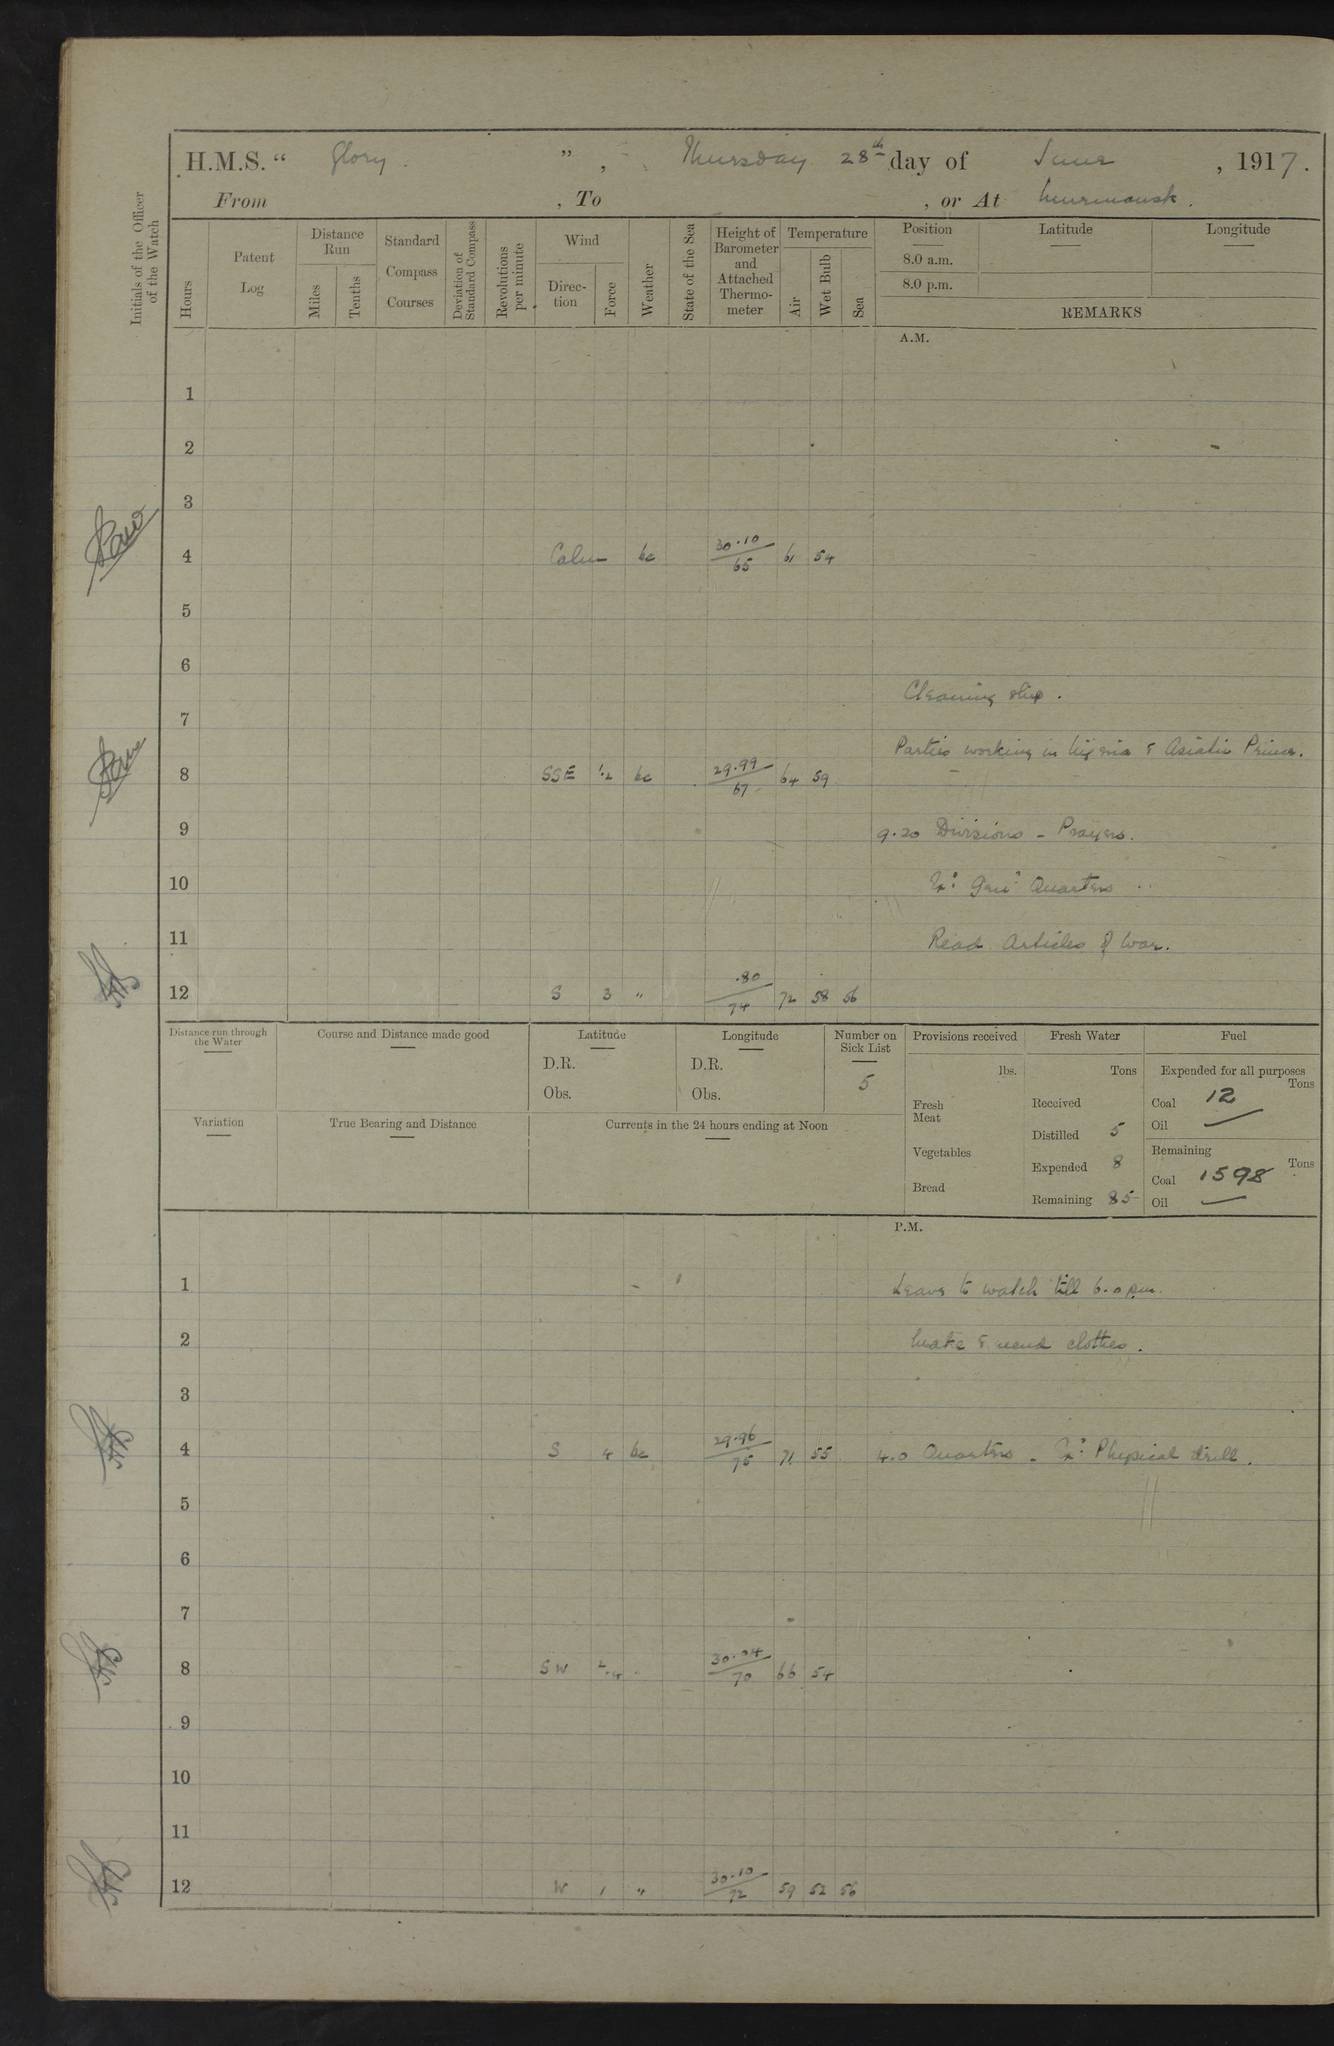 H.M.S. “ Glory. ” , Thursday 28th day of June , 1917.
From , To , or At Murmansk.
Initials of the Officer of the Watch
Hours
Patent Log
Distance Run
Miles
Tenths
Standard Compass Courses
Deviation of Standard Compass
Revolutions per minute
Wind
Direc-tion
Force
Weather
State of the Sea
Height of Barometer and Attached Thermo-meter
Temperature
Air
Wet Bulb
Sea
Position
Latitude
Longitude
8.0 a.m.
8.0 p.m.
REMARKS
A.M.
1
2
3
4 Calm bc 30.10/65 61 54
5
6
Cleaning ship.
7
Parties working in Nigeria & Asiatic Prince.
8 SSE 1.2 bc 29.99/67 64 59
9 9.20 Divisions - Prayers.
10 Ex: Genl Quarters
11 Read Articles of War.
12 S 3 " .80/74 72 58 56
Distance run through the Water
Course and Distance made good
Latitude
D.R.
Obs.
Longitude
D.R.
Obs.
Number on Sick List
5
Provisions received
lbs.
Fresh Meat
Vegetables
Bread
Fresh Water
Tons
Received
Distilled 5
Expended 8
Remaining 85
Fuel
Expended for all purposes
Tons
Coal 12
Oil —
Remaining
Tons
Coal 1598
Oil —
Variation
True Bearing and Distance
Currents in the 24 hours ending at Noon
P.M.
1 Leave to watch till 6.0 p.m.
2 Make & mend clothes.
3
4 S 4 bc 29.96/75 71 55 4.0 Quarters - Ex: Physical drill.
5
6
7
8 SW 2.4 30.04/70 66 54
9
10
11
12 W 1 " 30.10/72 59 52 56